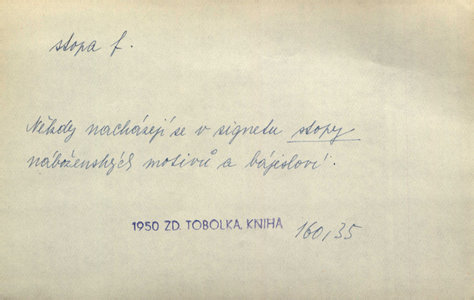 stopa f.
Někdy nacházejí se v signetu stopy
náboženských motivů a bájesloví.
1950 ZD. TOBOLKA, KNIHA 160,35